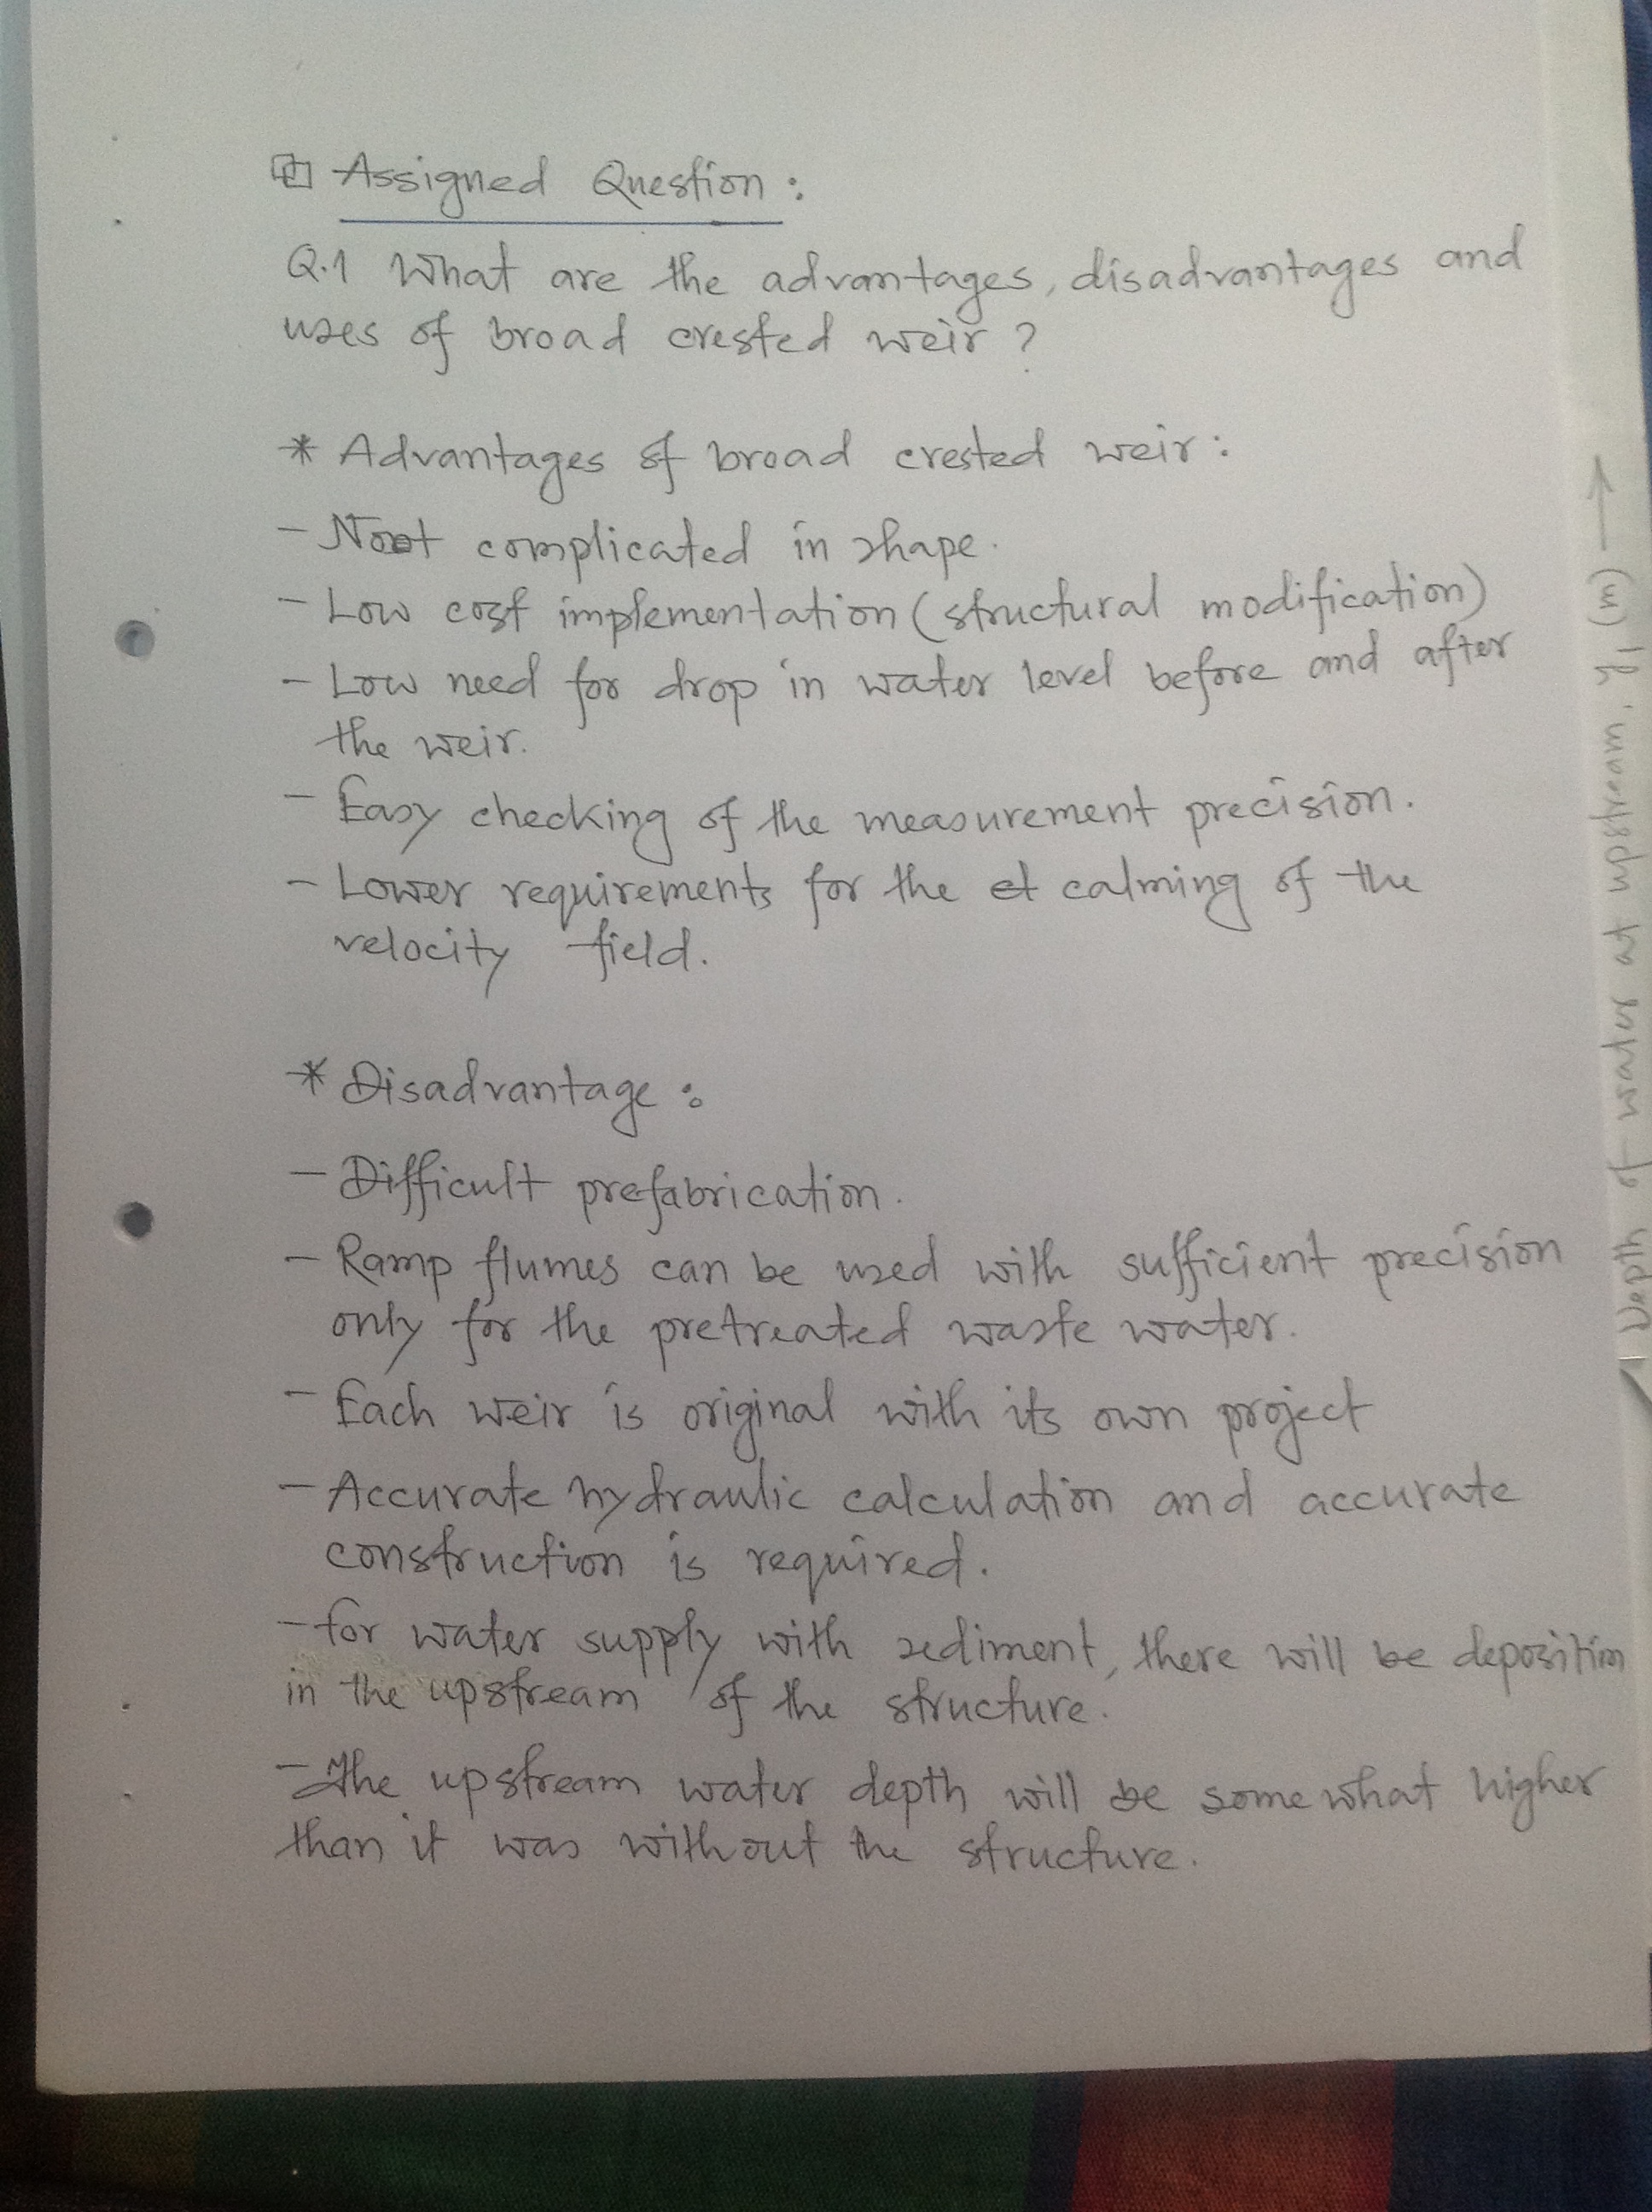 Assigned Question :
Q.1 What are the advantages, disadvantages and
uses of broad crested weir ?
* Advantages of broad crested weir :
- Not complicated in shape.
- Low cost implementation (structural modification)
- Low need for drop in water level before and after
the weir.
- Easy checking of the measurement precision.
- Lower requirements for the calming of the
velocity field.
* Disadvantage :
- Difficult prefabrication.
- Ramp flumes can be used with sufficient precision
only for the pretreated waste water.
- Each weir is original with its own project
- Accurate hydraulic calculation and accurate
construction is required.
- for water supply with sediment, there will be deposition
in the upstream of the structure.
- The upstream water depth will be somewhat higher
than it was without the structure.
Depth of water at upstream, y1 (m) →